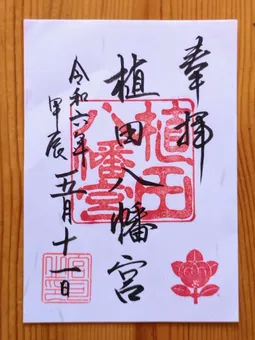 奉拝
植田八幡宮
植田
八幡宮
令和六年
甲辰
五月十一日